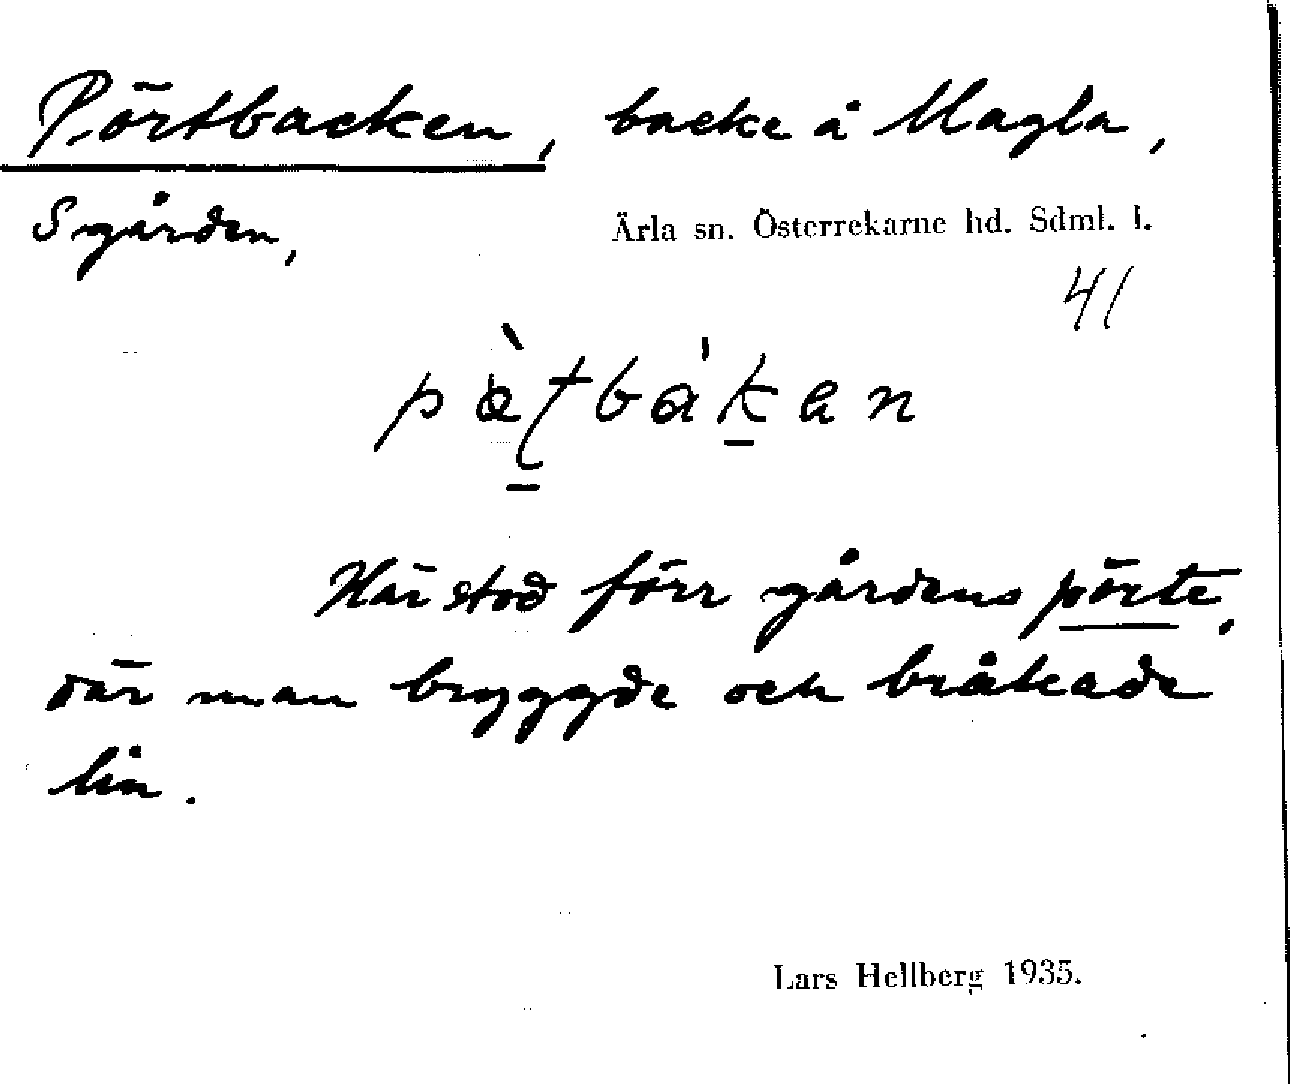 Pörtbacken, backe å Magla,
Sgården,
Ärla sn. Österrekarne hd. Sdml. l.
41
Här stod förr gårdens pörte,
där man bryggde och bråkade
lin.
Lars Hellberg 1935.